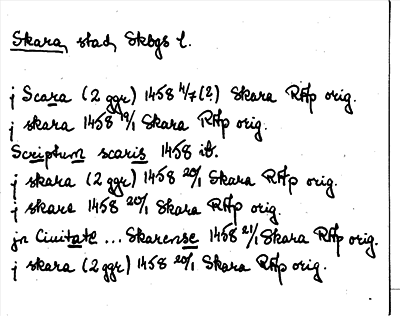 Skara, stad, Skbgs l.
j Scara (2 ggr) 1458 4/7(?) Skara RAp orig.
j skara 1458 19/1 Skara RAp orig.
Scriptum scaris 1458 ib.
j skara (2 ggr) 1458 20/1 Skara RAp orig.
j skara 1458 20/1 Skara RAp orig.
jn Ciuitate ... Skarense 1458 21/1 Skara RAp orig.
j skara (2 ggr) 1458 20/1 Skara RAp orig.